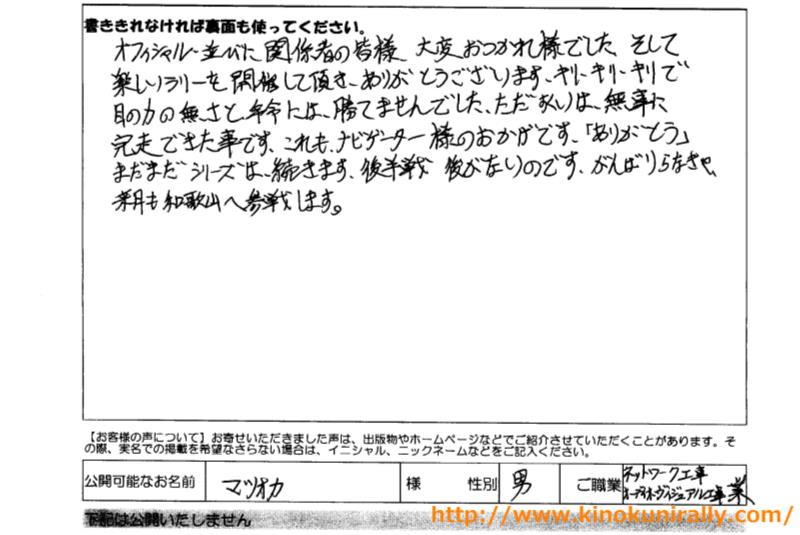 書ききれなければ裏面も使ってください。
オフィシャル、並びに関係者の皆様 大変おつかれ様でした。そして
楽しいラリーを開催して頂き、ありがとうございます、キリ・キリ・キリで
目の力の無さと年令には、勝てませんでした、ただ救いは、無事に
完走できた事です、これも、ナビゲーター様のおかげです、「ありがとう」
まだまだシリーズは、続きます、後半戦 後がないのです、がんばりらなきゃ、
来月も和歌山へ参戦します。
【お客様の声について】お寄せいただきました声は、出版物やホームページなどでご紹介させていただくことがあります。そ
の際、実名での掲載を希望なさらない場合は、イニシャル、ニックネームなどをご記入ください。
公開可能なお名前 マツオカ 様 性別 男 ご職業 ネットワーク工事
オーディオ・ヴィジュアル工事 業
下記は公開いたしません
http://www.kinokunirally.com/